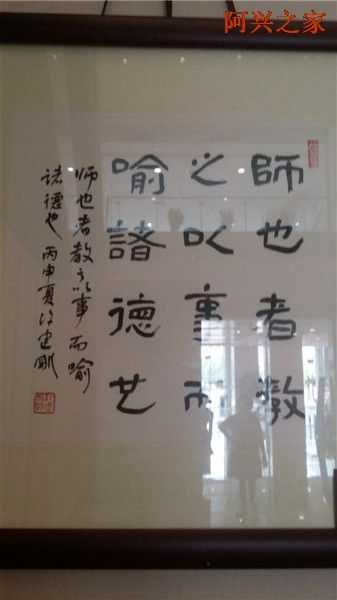 阿兴之家
師也者教
之以事而
喻諸德也
师也者教之以事而喻
诸德也 丙申夏